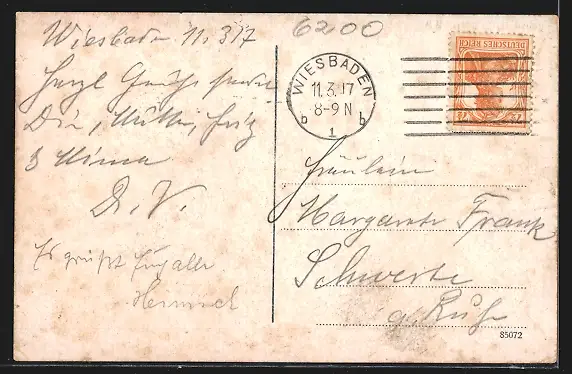 Wiesbaden 11.3.17
6200
Herzl. Grüße sendet
Dir, Mutter, Fritz
& Minna
D. V.
Es grüßt Euch alle
Heinrich
WIESBADEN
11.3.17
8-9 N
b 1 b
DEUTSCHES REICH
Fräulein
Margarete Frank
Schwerte
a. Ruhr
85072